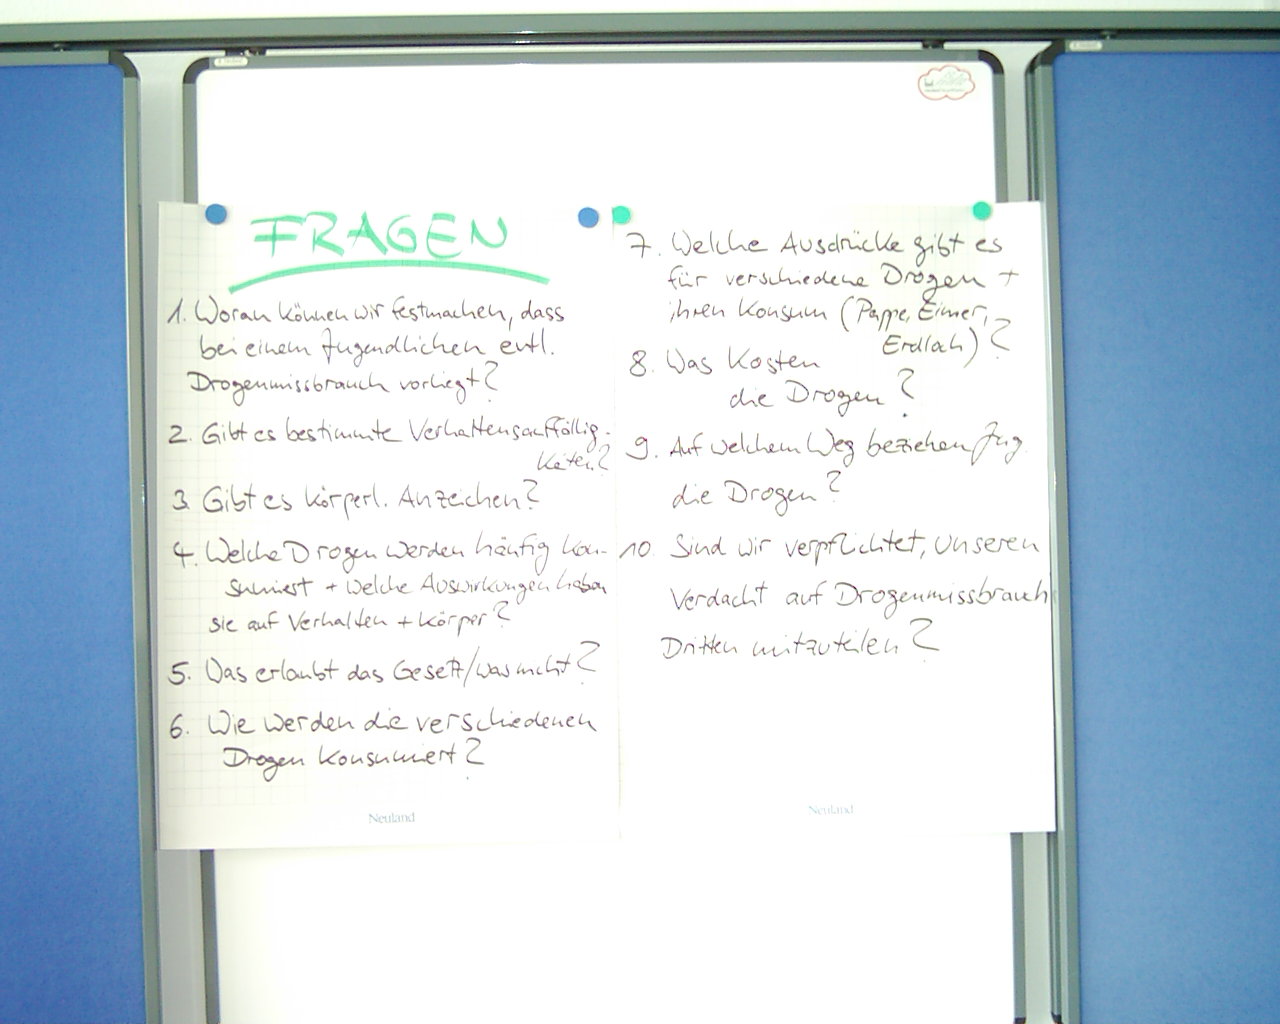 FRAGEN
1. Woran können wir festmachen, dass
bei einem Jugendlichen evtl.
Drogenmissbrauch vorliegt?
2. Gibt es bestimmte Verhaltensauffällig-
keiten?
3. Gibt es körperl. Anzeichen?
4. Welche Drogen werden häufig kon-
sumiert + welche Auswirkungen haben
sie auf Verhalten + Körper?
5. Was erlaubt das Gesetz/was nicht?
6. Wie werden die verschiedenen
Drogen konsumiert?
Neuland
7. Welche Ausdrücke gibt es
für verschiedene Drogen +
ihren Konsum (Pappe, Eimer,
Erdloch)?
8. Was kosten
die Drogen?
9. Auf welchem Weg beziehen Jug.
die Drogen?
10. Sind wir verpflichtet, unseren
Verdacht auf Drogenmissbrauch
Dritten mitzuteilen?
Neuland